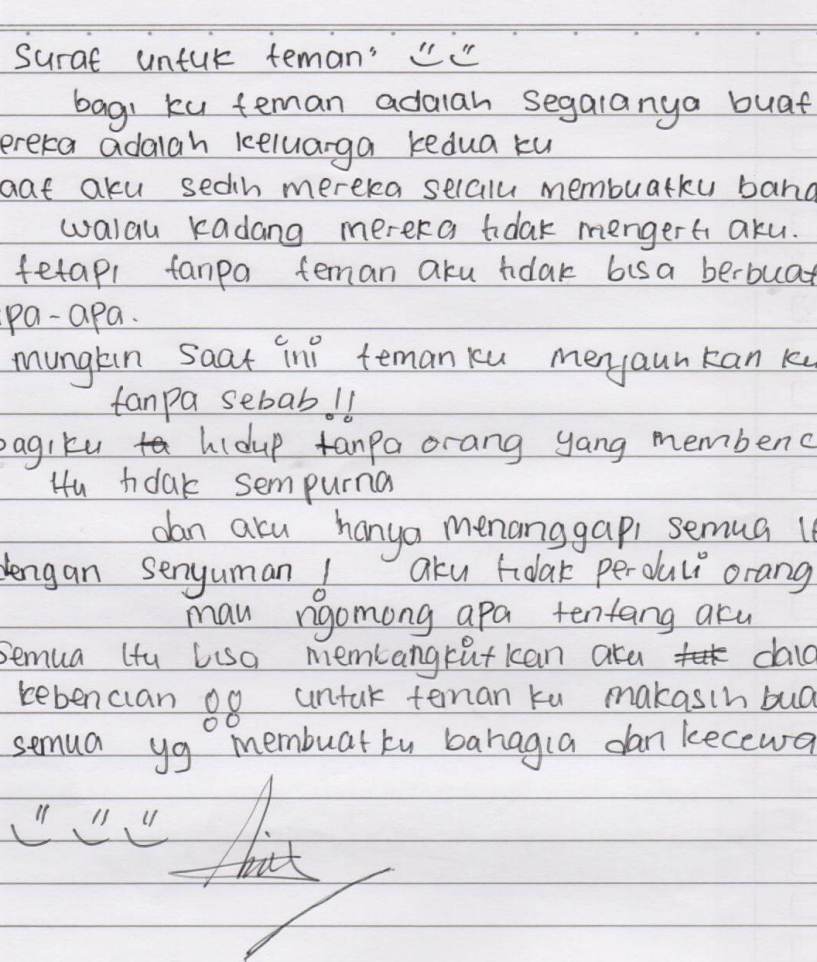 surat untuk teman"
bagi ku teman adalah segalanya buat
ereka adalah keluarga kedua ku
aat aku sedih mereka selalu membuatku baha
walau kadang mereka tidak mengerti aku.
tetapi tanpa teman aku tidak bisa berbuat
pa-apa.
mungkin saat ini teman ku menjauh kan ku
tanpa sebab!!
bagiku hidup tanpa orang yang membenc
itu tidak sempurna
dan aku hanya menanggapi semua it
dengan senyuman! aku tidak perduli orang
mau ngomong apa tentang aku
semua itu bisa aku dala
kebencian !! untuk teman ku makasih bua
semua yg membuat ku bahagia dan kecewa